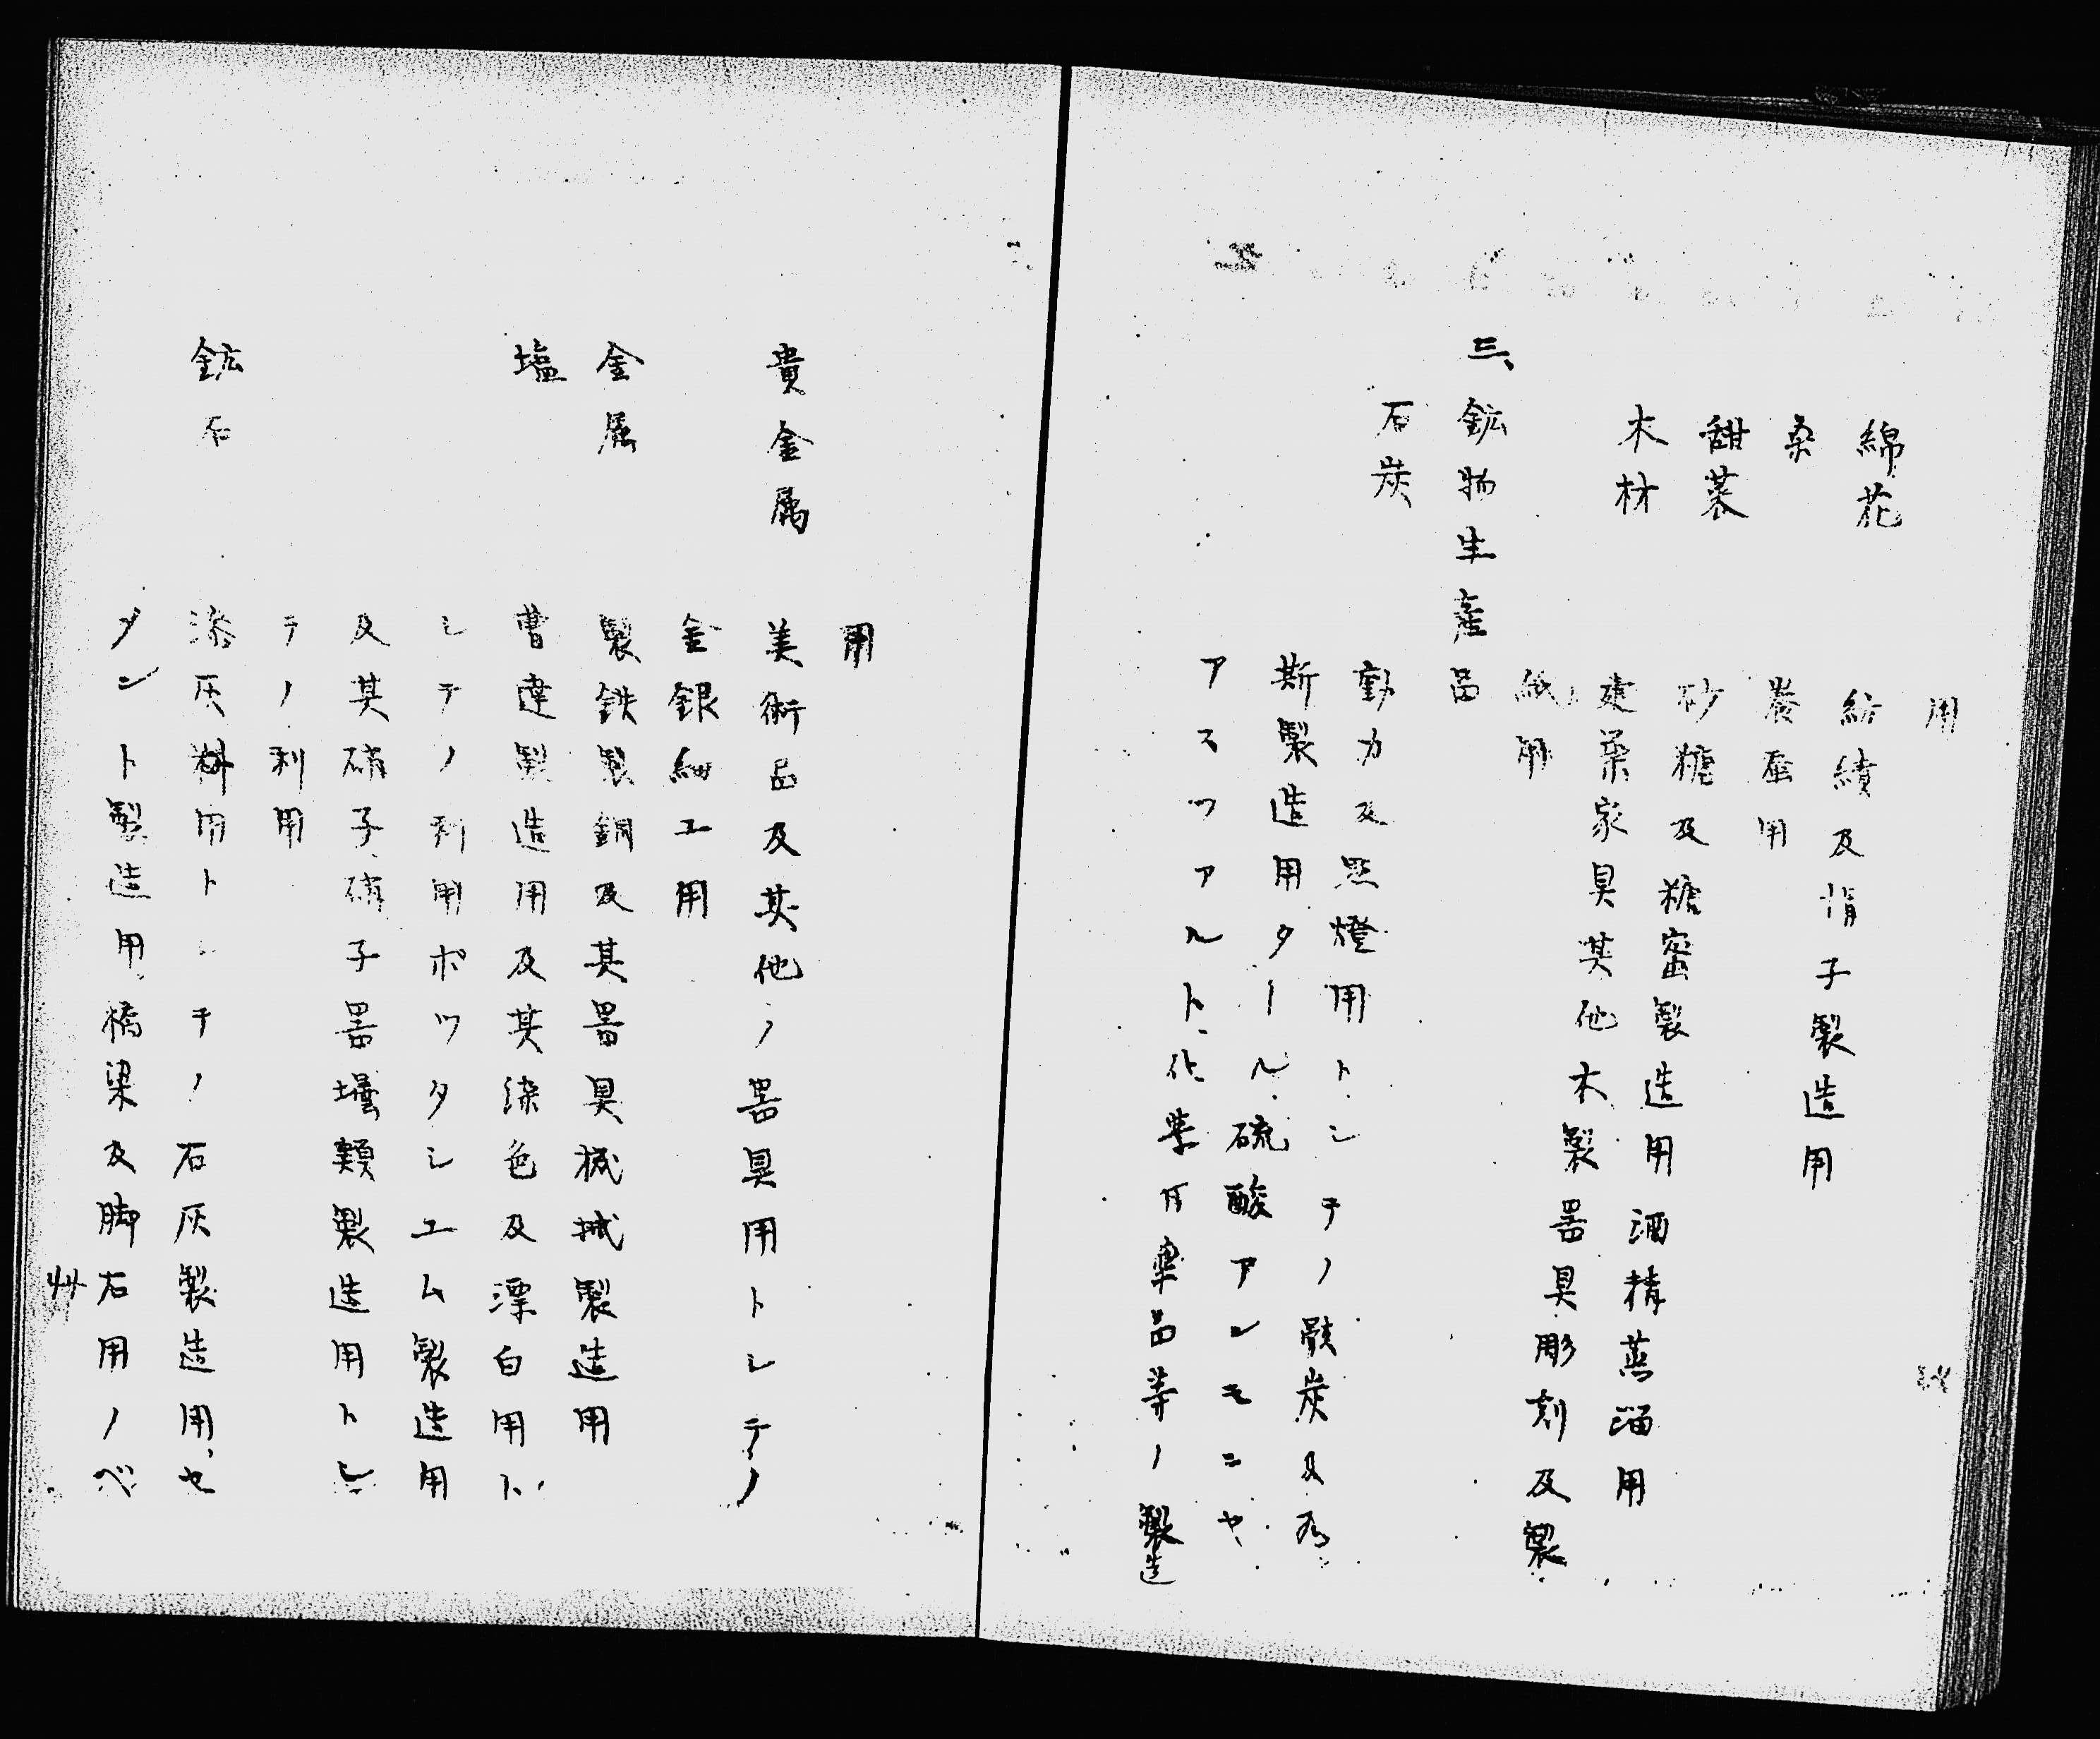 用
綿花 紡績及捐子製造用
桑 養蚕用
甜菜 砂糖及糖蜜製造用酒精蒸溜用
木材 建築家具其他木製器具彫刻及製
紙用
三、鉱物生産品
石炭 動力及点燈用トシテノ骸炭及瓦
斯製造用タール、硫酸アンモニヤ、
アスツアルト、化学用薬品等ノ製造
用
貴金属 美術品及其他ノ器具用トシテノ
金銀細工用
金属 製鉄製銅及其器具機械製造用
塩 曹達製造用及其染色及漂白用ト
シテノ利用ポツタシエム製造用
及其硝子、硝子器壜類製造用トシ
テノ利用
鉱石 漆灰料用トシテノ石灰製造用、セ
メント製造用、橋梁及脚石用ノベ